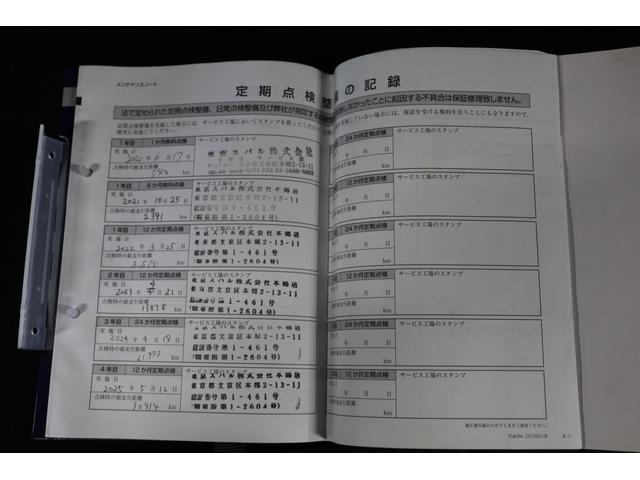 メンテナンスノート
定期点検整
法で定められた定期点検整備、日常点検整備及び弊社が指定する
定期点検整備を実施した場合には、サービス工場においてスタンプを買ってください。
確実に実施してください。
1年目 1か月無料点検 サービス工場のスタンプ
実施日 東京スバル株式会社
2021年6月17日
点検時の総走行距離
km
1年目 6か月無料点検 サービス工場のスタンプ
実施日 東京スバル株式会社本郷店
2021年10月25日 東京都文京区本郷2-13-11
点検時の総走行距離 認証番号第1-461号
2391 km (関東指第1-2604号)
1年目 12か月定期点検 サービス工場のスタンプ
実施日 東京スバル株式会社本郷店
2022年3月25日 東京都文京区本郷2-13-11
点検時の総走行距離 認証番号第1-461号
km (関東指第1-2604号)
2年目 12か月定期点検 サービス工場のスタンプ
実施日 東京スバル株式会社本郷店
2023年4月21日 東京都文京区本郷2-13-11
点検時の総走行距離 認証番号第1-461号
13878 km (関東指第1-2604号)
3年目 24か月定期点検 サービス工場のスタンプ
実施日 東京スバル株式会社本郷店
2024年4月18日 東京都文京区本郷2-13-11
点検時の総走行距離 認証番号第1-461号
21973 km (関東指第1-2604号)
4年目 12か月定期点検 サービス工場のスタンプ
実施日 東京スバル株式会社本郷店
2025年5月12日 東京都文京区本郷2-13-11
点検時の総走行距離 認証番号第1-461号
30414 km (関東指第1-2604号)
の記録
しなかったことに起因する不具合は保証修理致しません。
実施していない場合には、保証を受ける権利を失うこともなりますので、
24か月定期点検 サービス工場のスタンプ
年 月 日
km
12か月定期点検 サービス工場のスタンプ
年 月 日
km
24か月定期点検 サービス工場のスタンプ
年 月 日
km
12か月定期点検 サービス工場のスタンプ
年 月 日
km
24か月定期点検 サービス工場のスタンプ
年 月 日
km
12か月定期点検 サービス工場のスタンプ
年 月 日
km
8-1